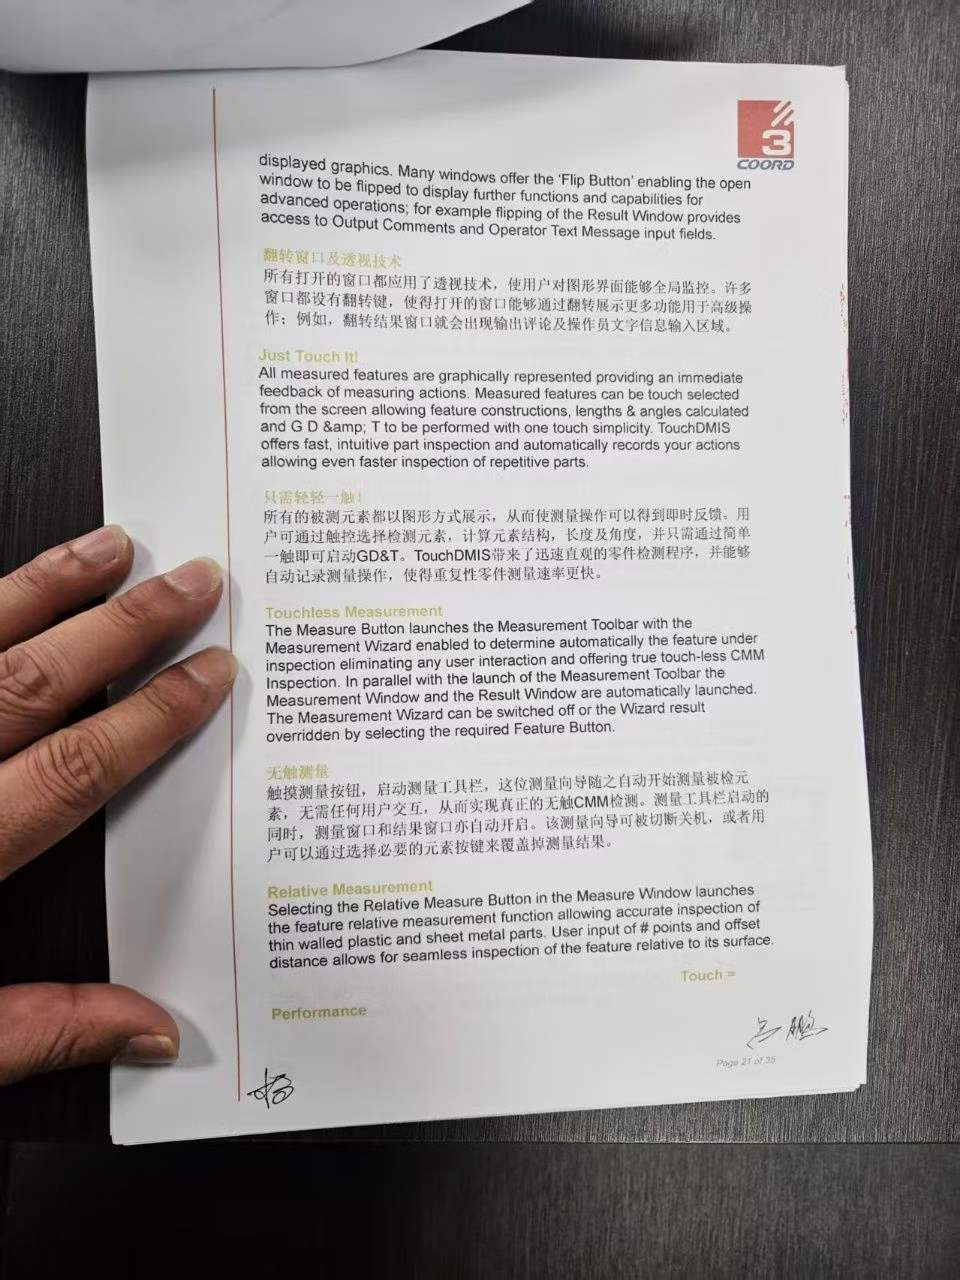 3
COORD
displayed graphics. Many windows offer the 'Flip Button' enabling the open
window to be flipped to display further functions and capabilities for
advanced operations; for example flipping of the Result Window provides
access to Output Comments and Operator Text Message input fields.
翻转窗口及透视技术
所有打开的窗口都应用了透视技术，使用户对图形界面能够全局监控。许多
窗口都设有翻转键，使得打开的窗口能够通过翻转展示更多功能用于高级操
作；例如，翻转结果窗口就会出现输出评论及操作员文字信息输入区域。
Just Touch It!
All measured features are graphically represented providing an immediate
feedback of measuring actions. Measured features can be touch selected
from the screen allowing feature constructions, lengths & angles calculated
and G D &amp; T to be performed with one touch simplicity. TouchDMIS
offers fast, intuitive part inspection and automatically records your actions
allowing even faster inspection of repetitive parts.
只需轻轻一触！
所有的被测元素都以图形方式展示，从而使测量操作可以得到即时反馈。用
户可通过触控选择检测元素，计算元素结构，长度及角度，并只需通过简单
一触即可启动GD&T。TouchDMIS带来了迅速直观的零件检测程序，并能够
自动记录测量操作，使得重复性零件测量速率更快。
Touchless Measurement
The Measure Button launches the Measurement Toolbar with the
Measurement Wizard enabled to determine automatically the feature under
inspection eliminating any user interaction and offering true touch-less CMM
Inspection. In parallel with the launch of the Measurement Toolbar the
Measurement Window and the Result Window are automatically launched.
The Measurement Wizard can be switched off or the Wizard result
overridden by selecting the required Feature Button.
无触测量
触摸测量按钮，启动测量工具栏，这位测量向导随之自动开始测量被检元
素，无需任何用户交互，从而实现真正的无触CMM检测。测量工具栏启动的
同时，测量窗口和结果窗口亦自动开启。该测量向导可被切断关机，或者用
户可以通过选择必要的元素按键来覆盖掉测量结果。
Relative Measurement
Selecting the Relative Measure Button in the Measure Window launches
the feature relative measurement function allowing accurate inspection of
thin walled plastic and sheet metal parts. User input of # points and offset
distance allows for seamless inspection of the feature relative to its surface.
Touch =
Performance
Page 21 of 35